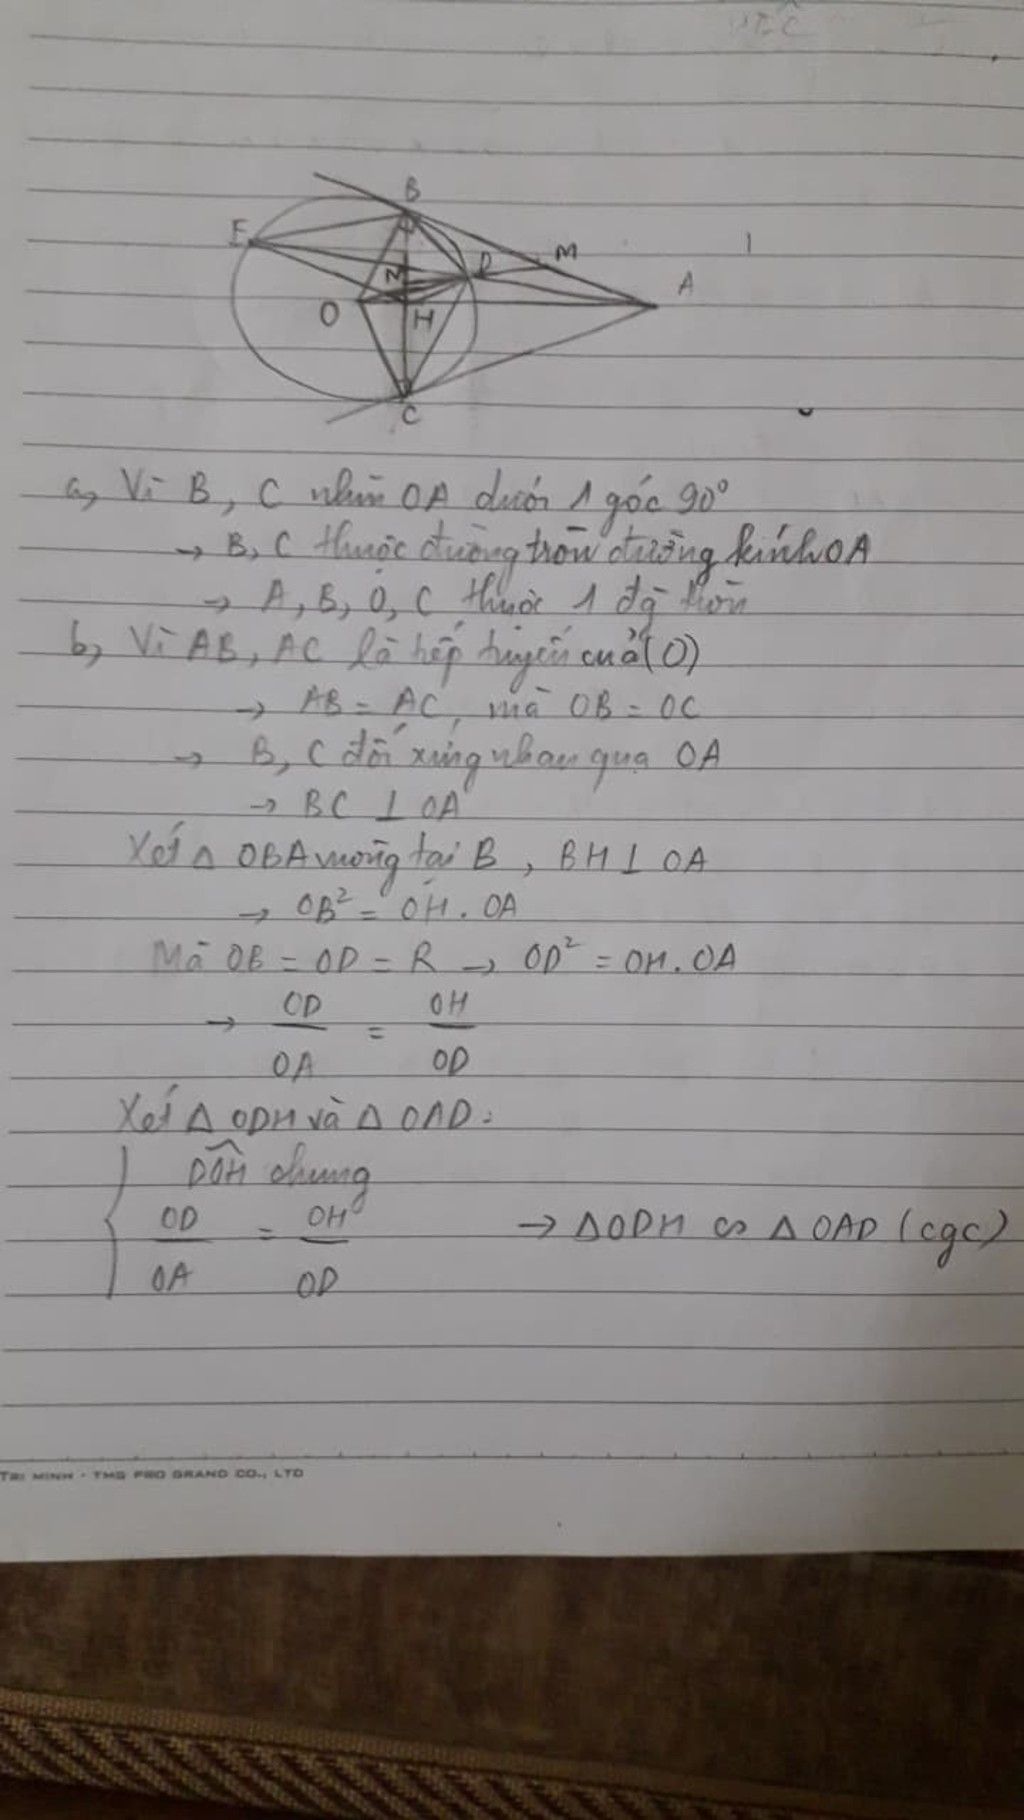 B
E
M
N
D
A
O
H
C
a, Vì B, C nhìn OA dưới 1 góc 90°
→ B, C thuộc đường tròn đường kính OA
→ A, B, O, C thuộc 1 đg tròn
b, Vì AB, AC là tiếp tuyến cuả (O)
→ AB = AC, mà OB = OC
→ B, C đối xứng nhau qua OA
→ BC ⊥ OA
Xét Δ OBA vuông tại B, BH ⊥ OA
→ OB² = OH . OA
Mà OB = OD = R → OD² = OH. OA
→ OD/OA = OH/OD
Xét Δ ODH và Δ OAD:
{ DÔH chung
OD/OA = OH/OD → ΔODH ∽ Δ OAD (cgc)
TRI MINH - TMG PRO GRAND CO., LTD